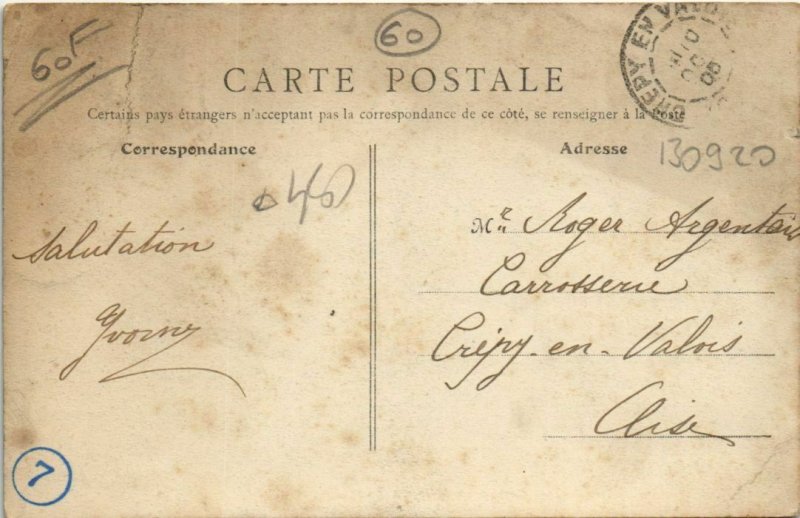 60F
60
CREPY EN VALOIS
CARTE POSTALE
Certains pays étrangers n'acceptant pas la correspondance de ce côté, se renseigner à la Poste
Correspondance
Adresse
130920
Salutation
Mr Roger Argentais
Carrosserie
Crépy-en-Valois
Oise
7